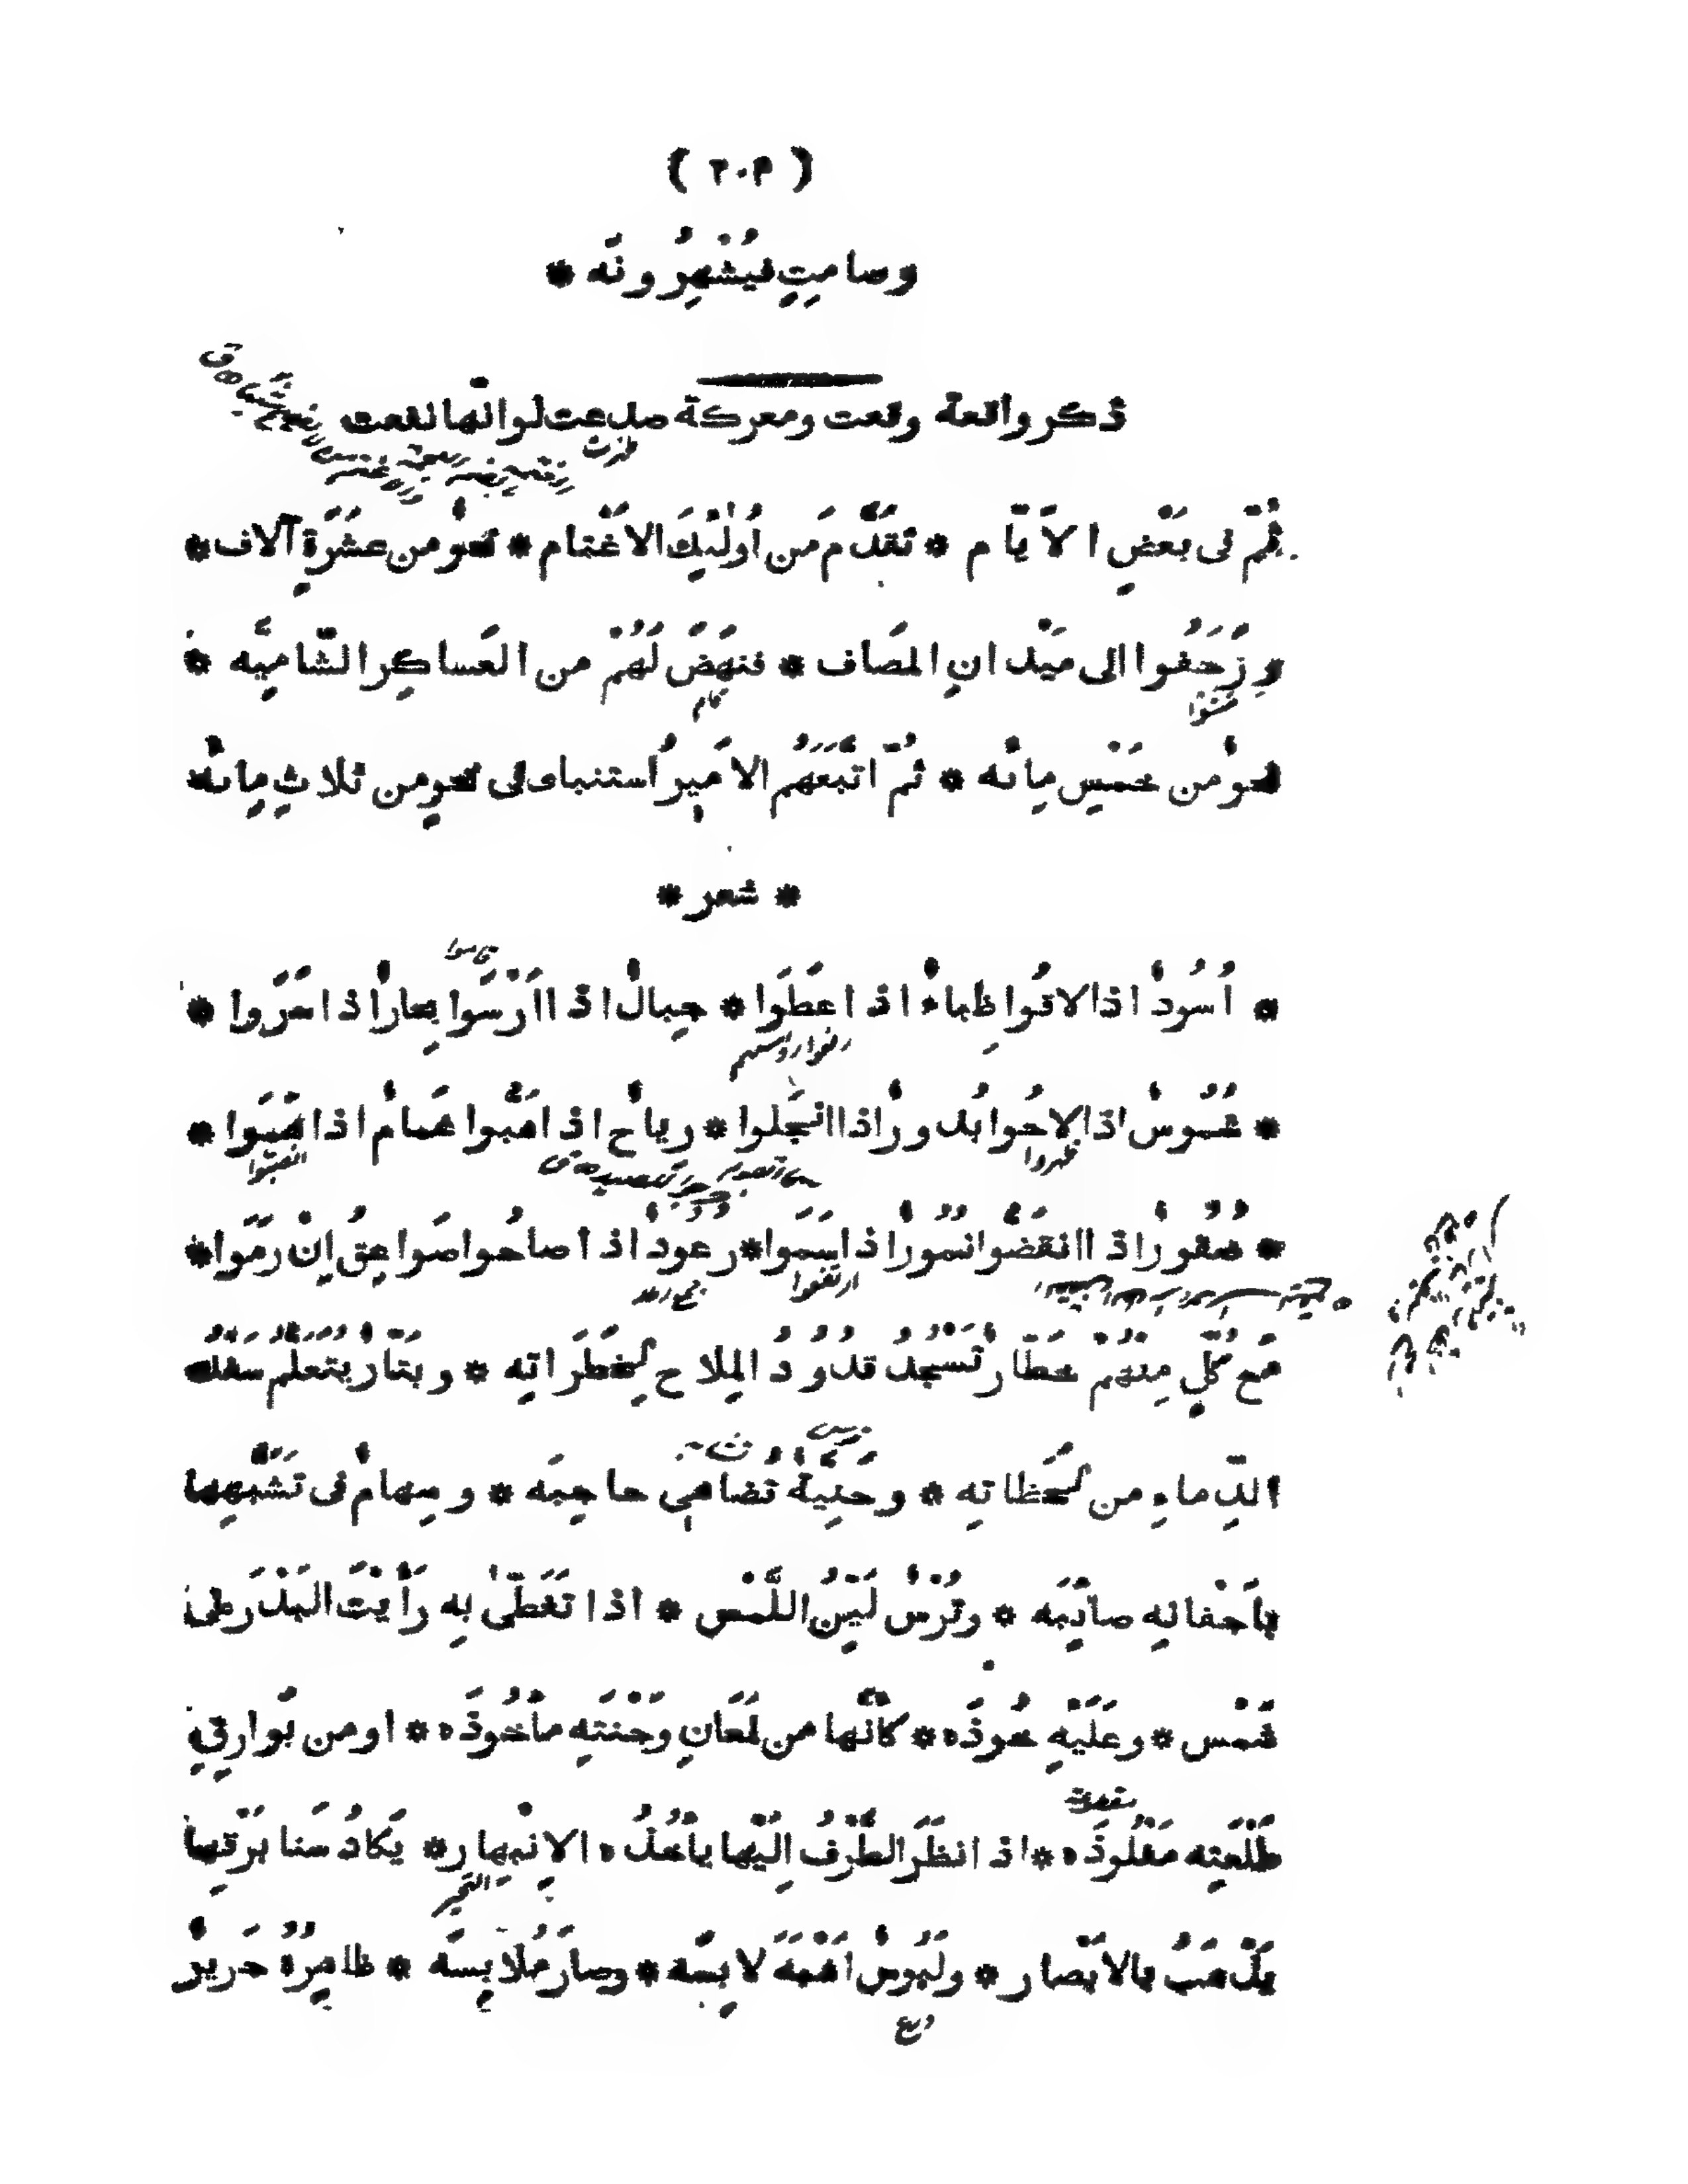 ( ٢٠٩ )
وصامِتٍ فيُشْهِرُونَه *
ذكر واقعة وقعت ومعركة صدعت لو انّها نفعت
ثُمّ فى بَعْضِ الاَيّام * تقدَّم مَن اُولٰئِكَ الاَغْتام * نحوٌ من عشَرَةِ آلاف *
وزَحَفُوا الى مَيْدانِ المصَاف * فنهَضَ لَهُمْ من العَساكِر الشّامِيَّه *
نحوٌ من خمْسِ مِائه * ثُمّ اتْبَعَهُم الاَمير اُستنباى فى نحوٍ من ثلاثِ مِائه
* شعر *
قاموا
* اُسُودٌ اذا لاقُوا ظِباءٌ اذا عطَوا * جِبالٌ اذا اَرْسَوا بِحارٌ اذا سَرَوا *
رفعوا روسهم
* شُمُوسٌ اذا لاحُوا بُدورٌ اذا انْجَلوا * رِياحٌ اذا هَبّوا غَمامٌ اذا هَمَوا *
ظهروا
* صُقُورٌ اذا انقَضّوا نُمُورٌ اذا سَمَوا * رُعُودٌ اذا صاحُوا صَواعِقُ اِنْ رَمَوا *
ارتفعوا
جمع رعد
مَع كُلٍّ مِنْهُمْ خطّارٌ تَسْجُدُ قدُودُ المِلاحِ لِخَطَراتِه * وبتّارٌ يتَعلّمُ سفْكَ
الدِّماءِ من لَحَظاتِه * وحَنِيّةٌ تُضاهِى حاجِبَه * وسِهامٌ فى تشَبُّهِها
بِاَجْفانِه صائِبَه * وتُرْسٌ لَيّنُ اللَّمْس * اذا تَغَطّىٰ بِه رَأيْتَ البَدْرَ على
شَمْس * وعَلَيْهِ خُوذَه * كأنّها من لَمَعَانِ وجْنَتِه مأخُوذَه * او من بَوارِقِ
طَلْعَتِه مَفْلُوذَه * اذا نظَرَ الطَّرْفُ اِلَيْها يأخُذُه الاِنْبِهار * يَكادُ سَنا بَرْقِها
التحير
يَذْهَبُ بِالاَبْصار * ولَبُوسٌ اَشْبَهَ لابِسَه * وصارَ مُلابِسَه * ظاهِرُهُ حَرِيرٌ
درع